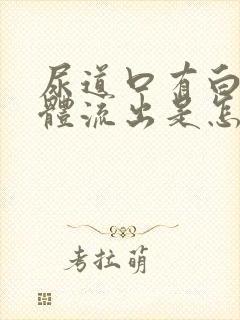 尿道口有白
體流出是怎
考拉萌